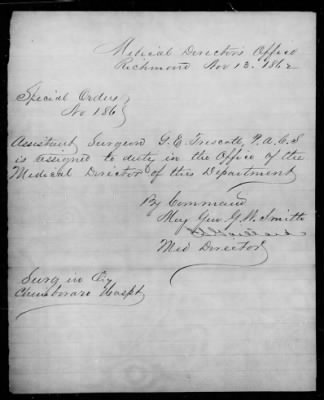 Medical Directors Office
Richmond Nov 13. 1862
Special Orders
No 186
Assistant Surgeon G. E. Trescott, P. A. C. S
is assigned to duty in the Office of the
Medical Director of this Department
By Command
Maj Gen. G. W. Smith
Med Director
Surg in Chg
Chimborazo Hospt